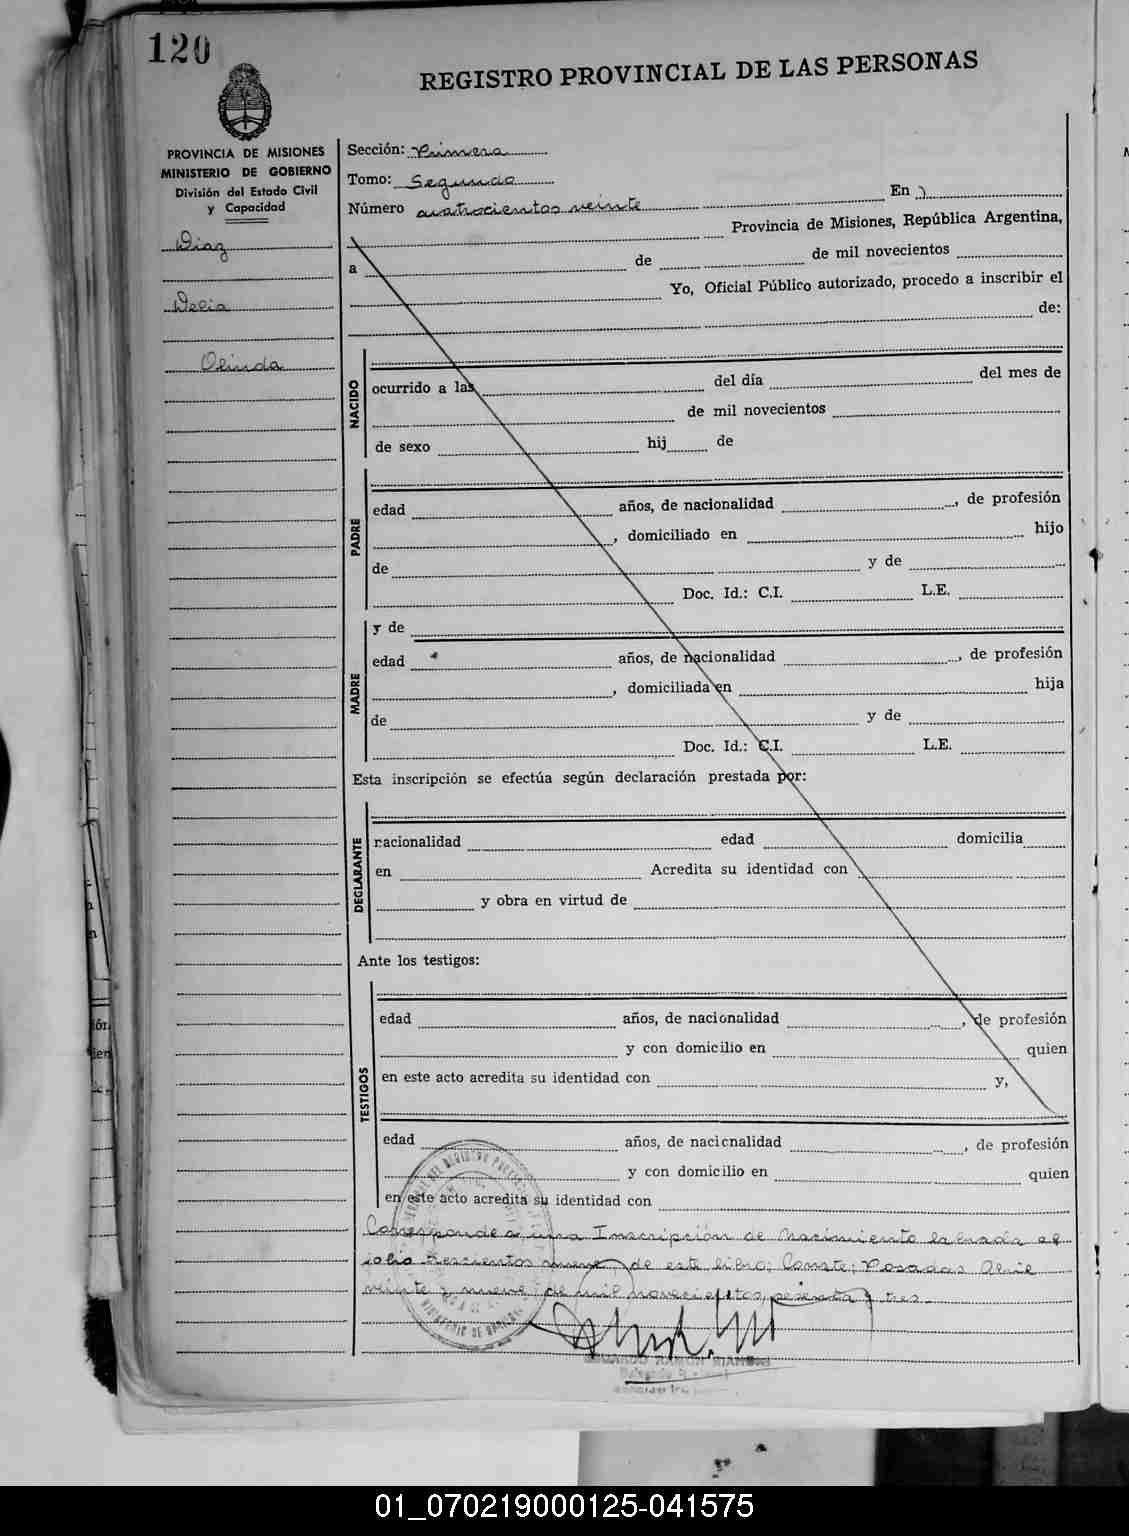 120
REGISTRO PROVINCIAL DE LAS PERSONAS
PROVINCIA DE MISIONES
MINISTERIO DE GOBIERNO
División del Estado Civil
y Capacidad
Diaz
Delia
Olinda
Sección: Primera
Tomo: Segundo
Número cuatrocientos veinte En
Provincia de Misiones, República Argentina,
a de de mil novecientos
Yo, Oficial Público autorizado, procedo a inscribir el
de:
NACIDO
ocurrido a las del día del mes de
de mil novecientos
de sexo hij de
PADRE
edad años, de nacionalidad , de profesión
, domiciliado en hijo
de y de
Doc. Id.: C.I. L.E.
MADRE
y de
edad años, de nacionalidad , de profesión
, domiciliada en hija
de y de
Doc. Id.: C.I. L.E.
Esta inscripción se efectúa según declaración prestada por:
DECLARANTE
nacionalidad edad domicilia
en Acredita su identidad con
y obra en virtud de
Ante los testigos:
TESTIGOS
edad años, de nacionalidad , de profesión
y con domicilio en quien
en este acto acredita su identidad con y,
edad años, de nacionalidad , de profesión
y con domicilio en quien
en este acto acredita su identidad con
Corresponde a una Inscripción de Nacimiento labrada al
folio trescientos nueve de este libro; Conste; Posadas Abril
veinte y nueve de mil novecientos sesenta y tres.
01_070219000125-041575